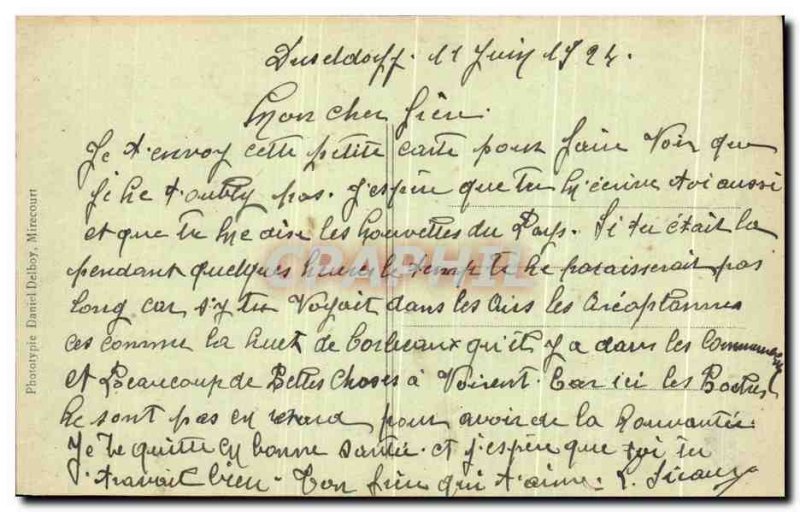 Duseldorff. 11 Juin 1924.
Mon cher frère.
Je t'envoy cette petite carte pour faire voir que
je ne t'oubly pas. j'espère que tu m'écrira toi aussi
et que tu me dise les nouvelles du Pays. Si tu était la
pendant quelques heures le temp te ne paraisserait pas
long car s'y tu voyait dans les airs les aréoplannes
ces comme la nuet de corbeaux qu'il y a dans les
et Beaucoup de Belles choses à voirent. Car ici les Boches
ne sont pas en retard pour avoir de la nouvautée.
Je te quitte en bonne santée. et j'espère que toi tu
travail bien. Ton frère qui t'aime. L.
Phototypie Daniel Delboy, Mirecourt
CPAPHIL